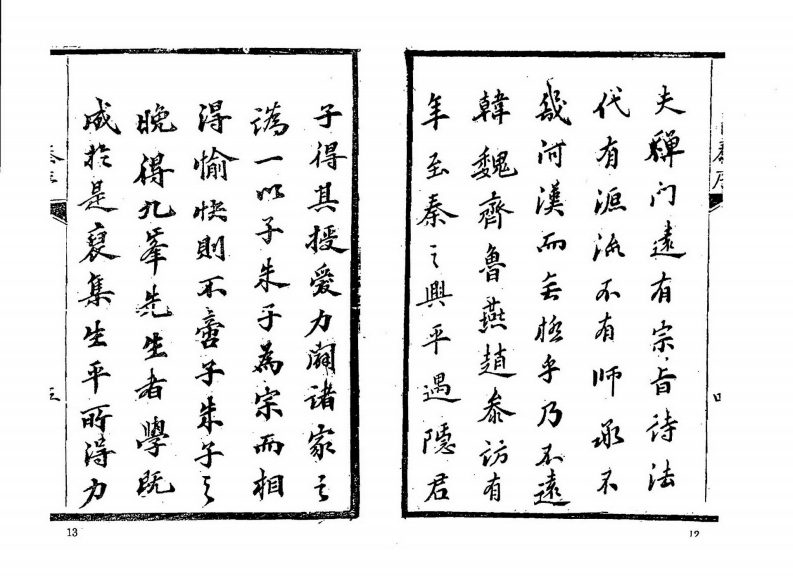 夫禪门遠有宗旨詩法
代有源流不有師承不
幾河漢而無極乎乃不遠
韓魏齊魯燕趙叅訪有
年至秦之興平遇隱君
四
12
子得其授受力闢諸家之
譌一以子朱子為宗而相
得愉快則不啻子朱子之
晚得九峯先生者學既
成於是裒集生平所得力
五
13